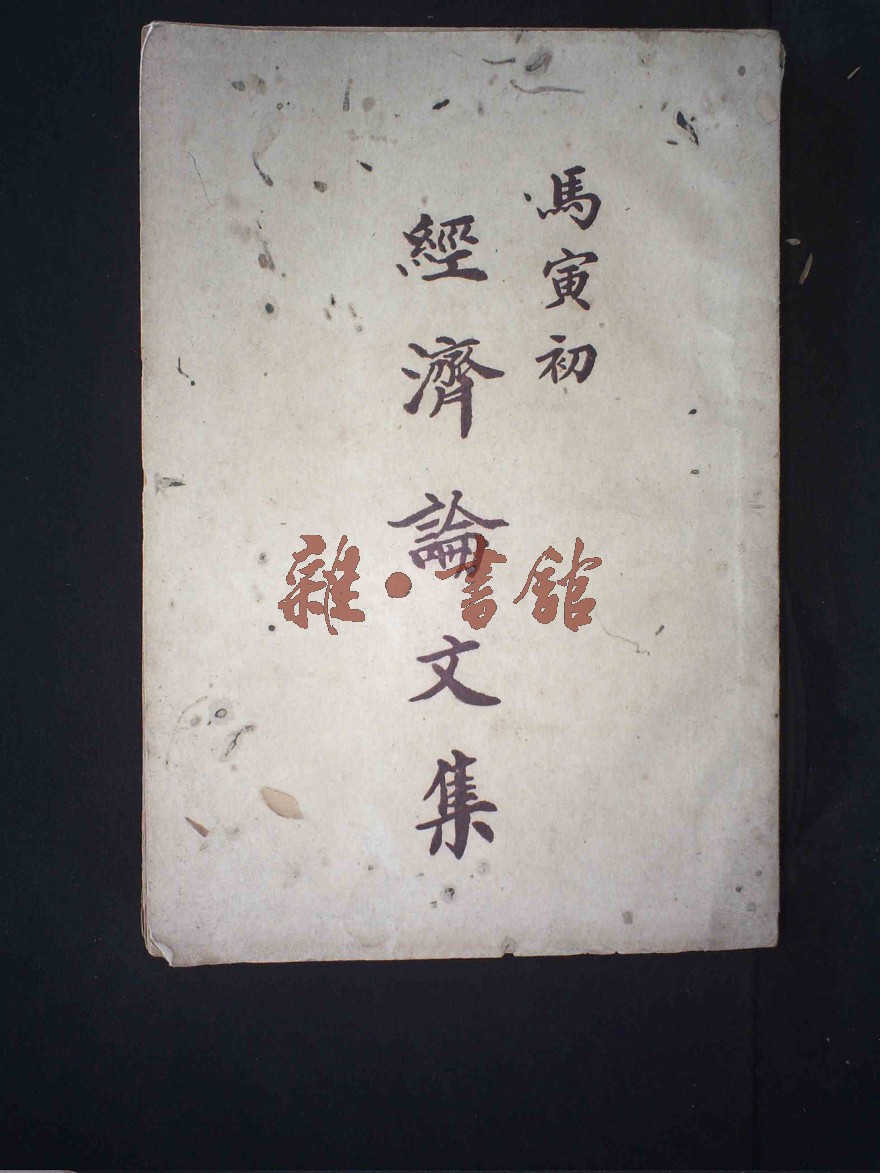 馬寅初
經濟論文集
雜·書館